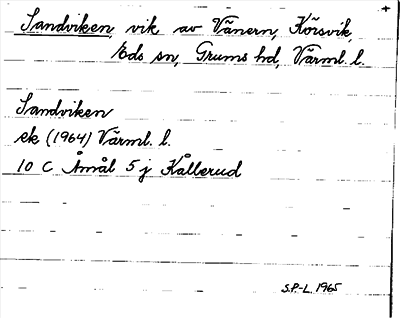 Sandviken, vik av Vänern, Körsvik,
Eds sn, Grums hd, Värml. l.
Sandviken
ek (1964) Värml. l.
10 C Åmål 5 j Kållerud
S.P.-L. 1965